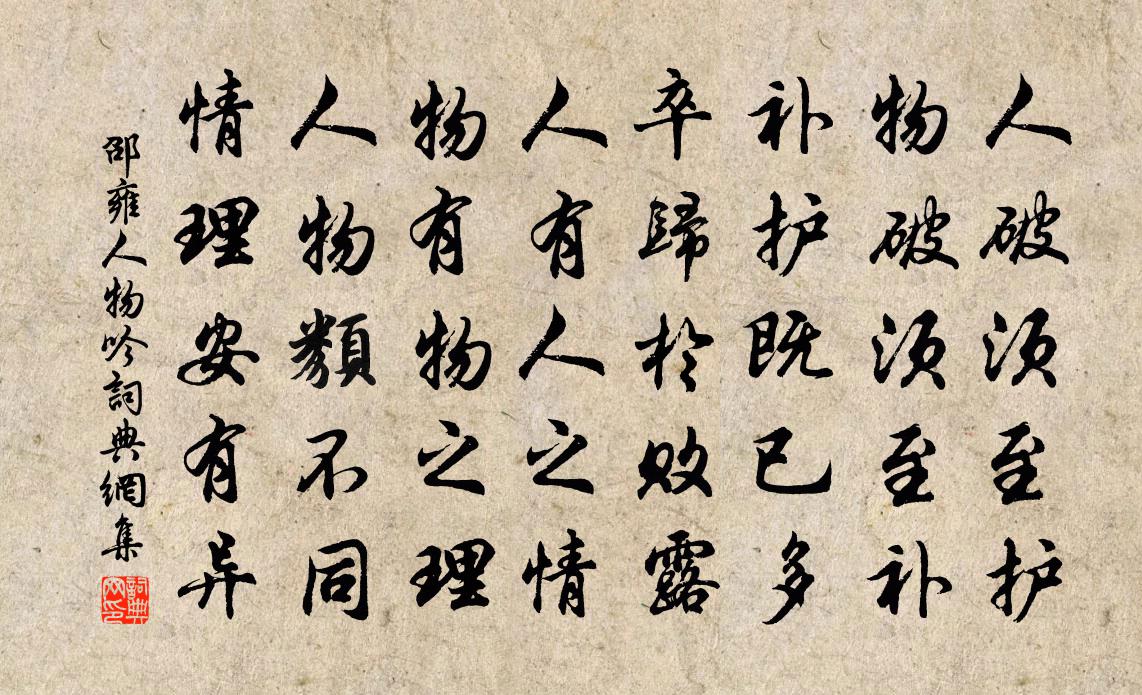 人破须至护
物破须至补
补护既已多
卒歸於败露
人有人之情
物有物之理
人物類不同
情理安有异
邵雍人物吟詞典網集
詞典网印